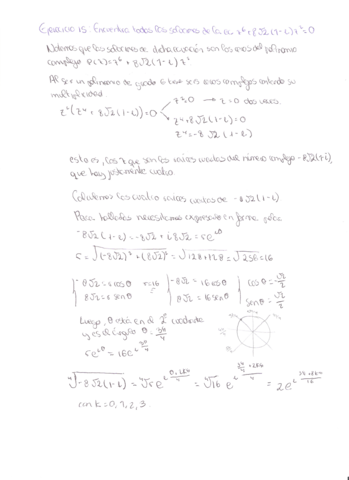 Ejercicio 15. Encuentra todas las soluciones de la ec. z⁶+8√2(1-i)z²=0
Notemos que las soluciones de dicha ecuación son los ceros del polinomio
complejo P(z)=z⁶+8√2(1-i)z²
Al ser un polinomio de grado 6 tiene seis ceros complejos contando su
multiplicidad
z²(z⁴+8√2(1-i))=0 z²=0 → z=0 dos veces.
z⁴+8√2(1-i)=0
z⁴=-8√2(1-i)
esto es, los z que son las raíces cuartas del número complejo -8√2(1-i),
que hay justamente cuatro.
Calculemos las cuatro raíces cuartas de -8√2(1-i)
Para hallarlas necesitamos expresarlo en forma polar
-8√2(1-i)=-8√2+i8√2=re^{iθ}
r=√((-8√2)²+(8√2)²)=√(128+128)=√256=16
-8√2=r cosθ r=16 -8√2=16cosθ cosθ=-√2/2
8√2=r senθ 8√2=16senθ senθ=√2/2
Luego, θ está en el 2º cuadrante
y es el ángulo θ=3π/4
re^{iθ}=16e^{i3π/4}
⁴√(-8√2(1-i))=⁴√r e^{i(θ+2kπ)/4}=⁴√16 e^{i(3π/4+2kπ)/4}=2e^{i(3π+8kπ)/16}
con k=0,1,2,3.